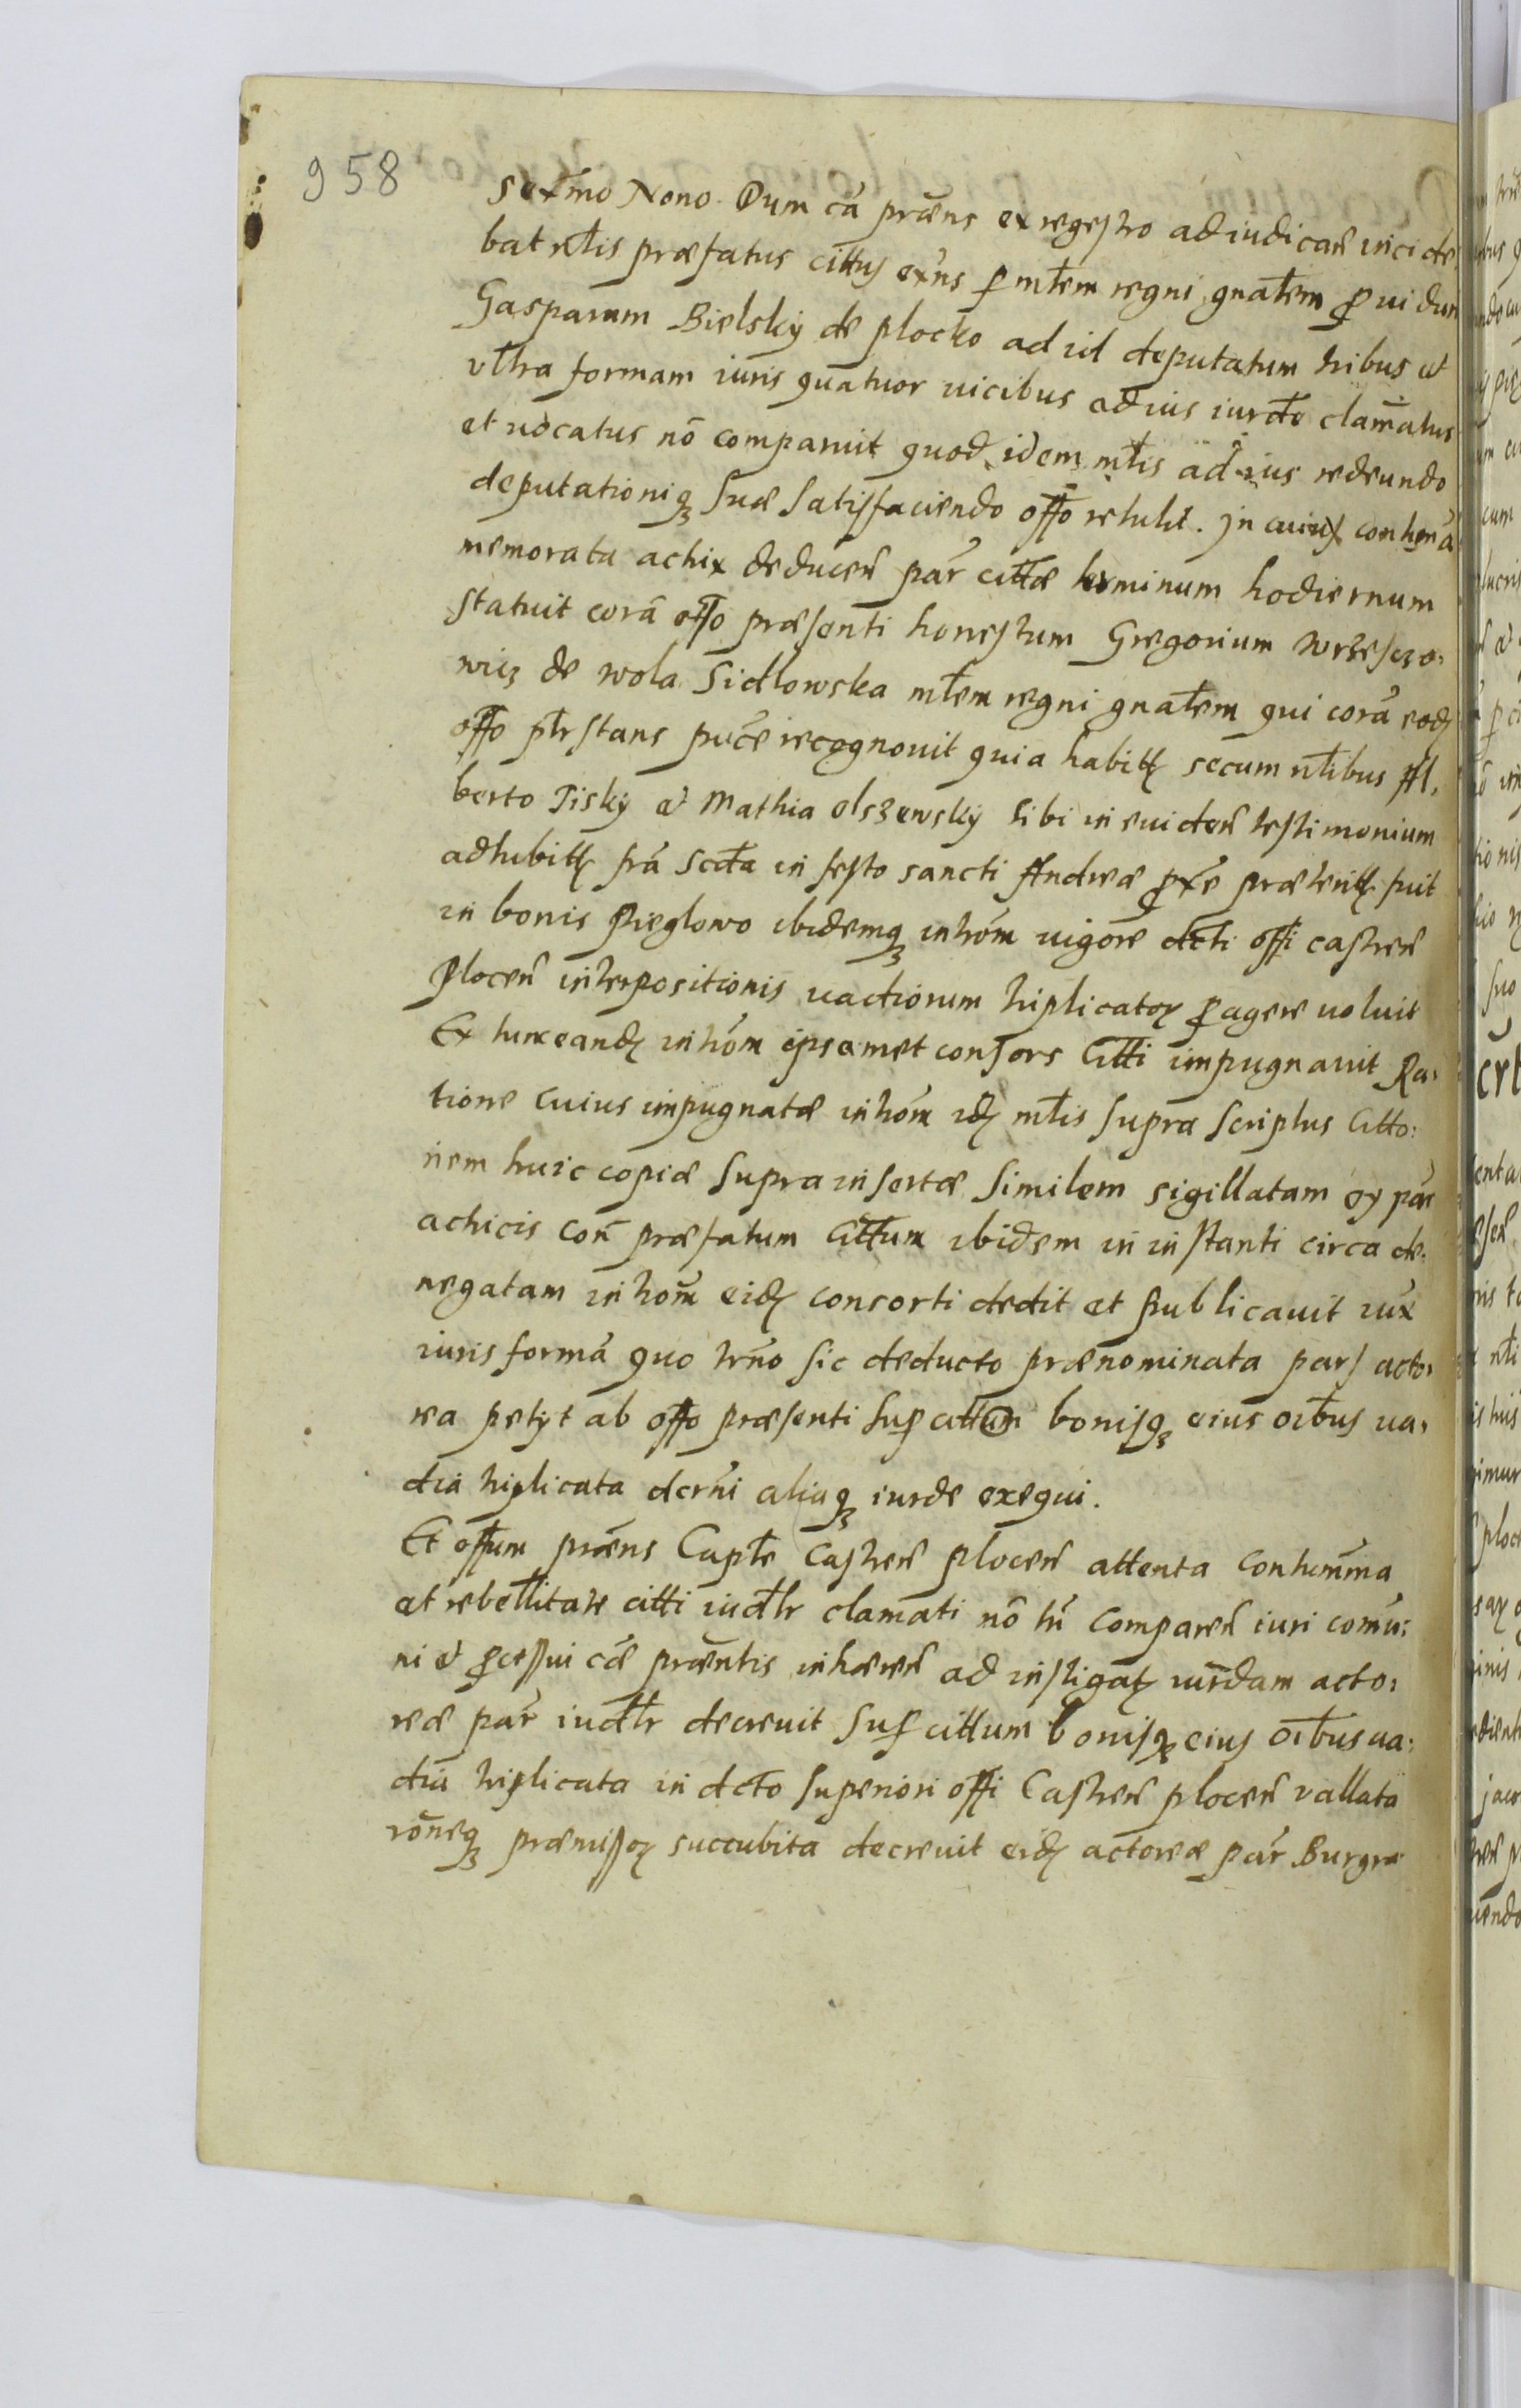 958
Sextmo Nono. Dum cā præns ex regestro adiudicań incide:
bat nłlis præfatus cittus extns p mtem regni gnatem proui dum
Gasparum Bielsky de plocko ad id deputatum tribus et
vltra formam iuris quatuor vicibus ad ius iurdte clamatus
et uocatus nō comparuit quod idem mtis ad ius redeundo
deputationiq₃ suæ satisfaciendo offo retulit. In cuius contumā
memorata actrix deducen̄ par cittæ terminum hodiernum
statuit corā offo præsenti honestum Gregorium Wrzesczo:
wicz de wola Sidlowska mtem regni gnatem qui corā eod
offo ptr stans pucē recognouit quia habitt secum nłibus Al:
berto Pisky et Mathia olszewsky sibi in euiden̄ testimonium
adhibitt fra scda in festo sancti Andreæ pxe præteritt fuit
in bonis Pieglowo ibidemq₃ introm̄ uigore dcti offi castren̄
Plocen̄ interpositionis uadiorum triplicator₃ pagere uoluit
Ex tunc eand introm̄ ipsamet consors Citti impugnauit Ra:
tione cuius impugnatæ introm̄ id mtis supra scriptus Citto:
nem huic copiæ supra insertæ similem sigillatam ex par
actricis con̄ præfatum Cittum ibidem in instanti circa de:
negatam introm̄ eid consorti dedit et publicauit iux
iuris formā quo trno sic deducto prænominata pars acto:
rea petyt ab offo præsenti sup cittum bonisq₃ eius oibus ua:
dia triplicata decrni aliaq₃ iurde exequi.
Et offum præns Capłe Castren̄ plocen̄ attenta contumma
et rebellitate citti iudłr clamati nō tn comparen̄ iuri comu:
ni et pcessui cæ præntis inhæren̄ ad instigat iurdam acto:
reæ par iudłr decreuit sup cittum bonisq₃ eius oibus ua:
dia triplicata in dcto superiori offi Castren̄ plocen̄ vallata
roneq₃ præmissor₃ succubita decreuit eid actoreæ par Burgra